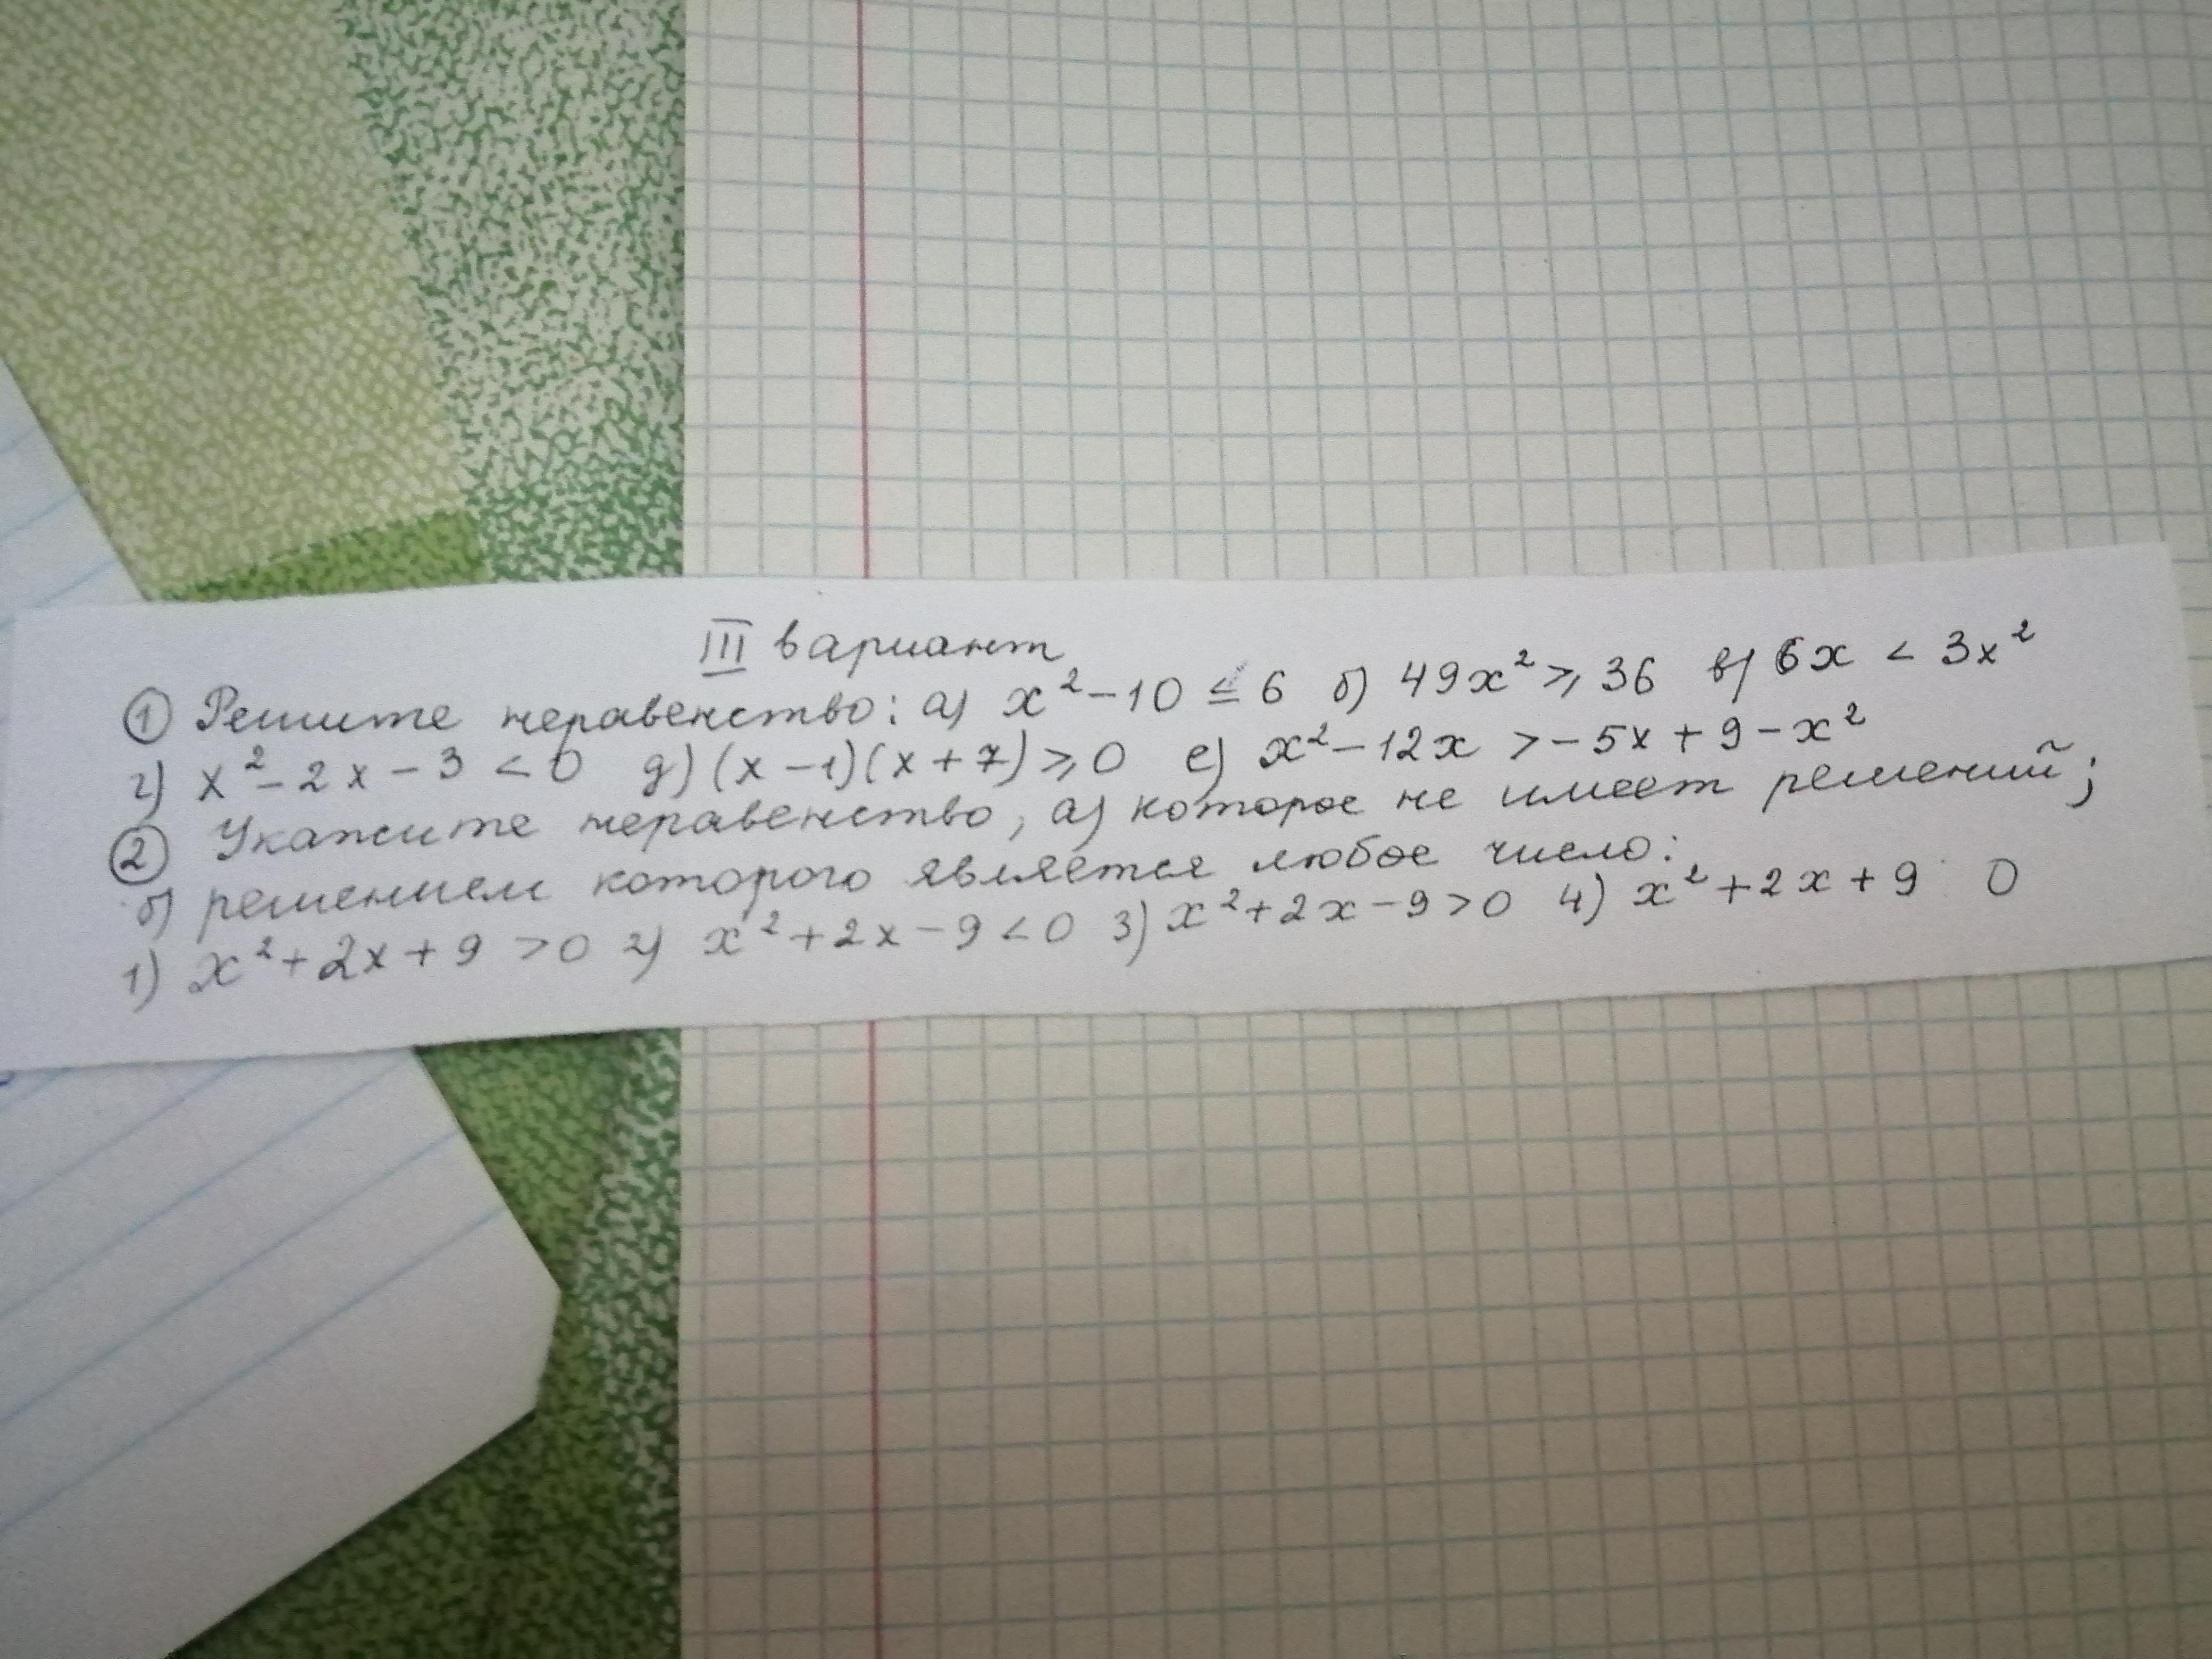 III вариант
① Решите неравенство: а) x² - 10 ≤ 6 б) 49x² ⩾ 36 в) 6x < 3x²
г) x² - 2x - 3 < 0 д) (x - 1)(x + 7) ⩾ 0 е) x² - 12x > - 5x + 9 - x²
② Укажите неравенство, а) которое не имеет решений;
б) решением которого является любое число:
1) x² + 2x + 9 > 0 2) x² + 2x - 9 < 0 3) x² + 2x - 9 > 0 4) x² + 2x + 9 0